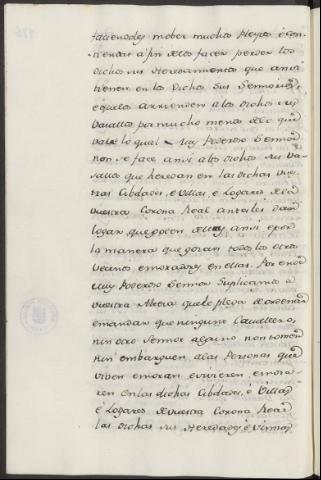 faciendoles mober muchos Pleytos é con-
tiendas á fin de los facer perder los
dichos sus Heredamientos que ansi
tienen en los dichos sus Señorios,
é que los arrienden á los dichos sus
Vasallos por mucho menos de lo que
vale lo qual muy Poderoso Señor
non se face ansi á los dichos sus Va-
sallos que heredan en las dichas Vue-
tras Cibdades, é Villas, é Logares de la
vuestra Corona Real antes les dan
logar que gocen de lo suyo ansi é por
la manera que gozan todos los otros
Vecinos é moradores en ellas. Por ende
Muy Poderoso Señor Suplicamos á
vuestra Alteza que le plega de ordenar
é mandar que ninguno Cavallero,
nin otro Señor alguno non tomen
nin embarguen, á las Personas que
viven é moran é vivieren, é mora-
ren en las dichas Cibdades, é Villas
é Logares de vuestra Corona Real
las dichas sus Heredades é Viñas